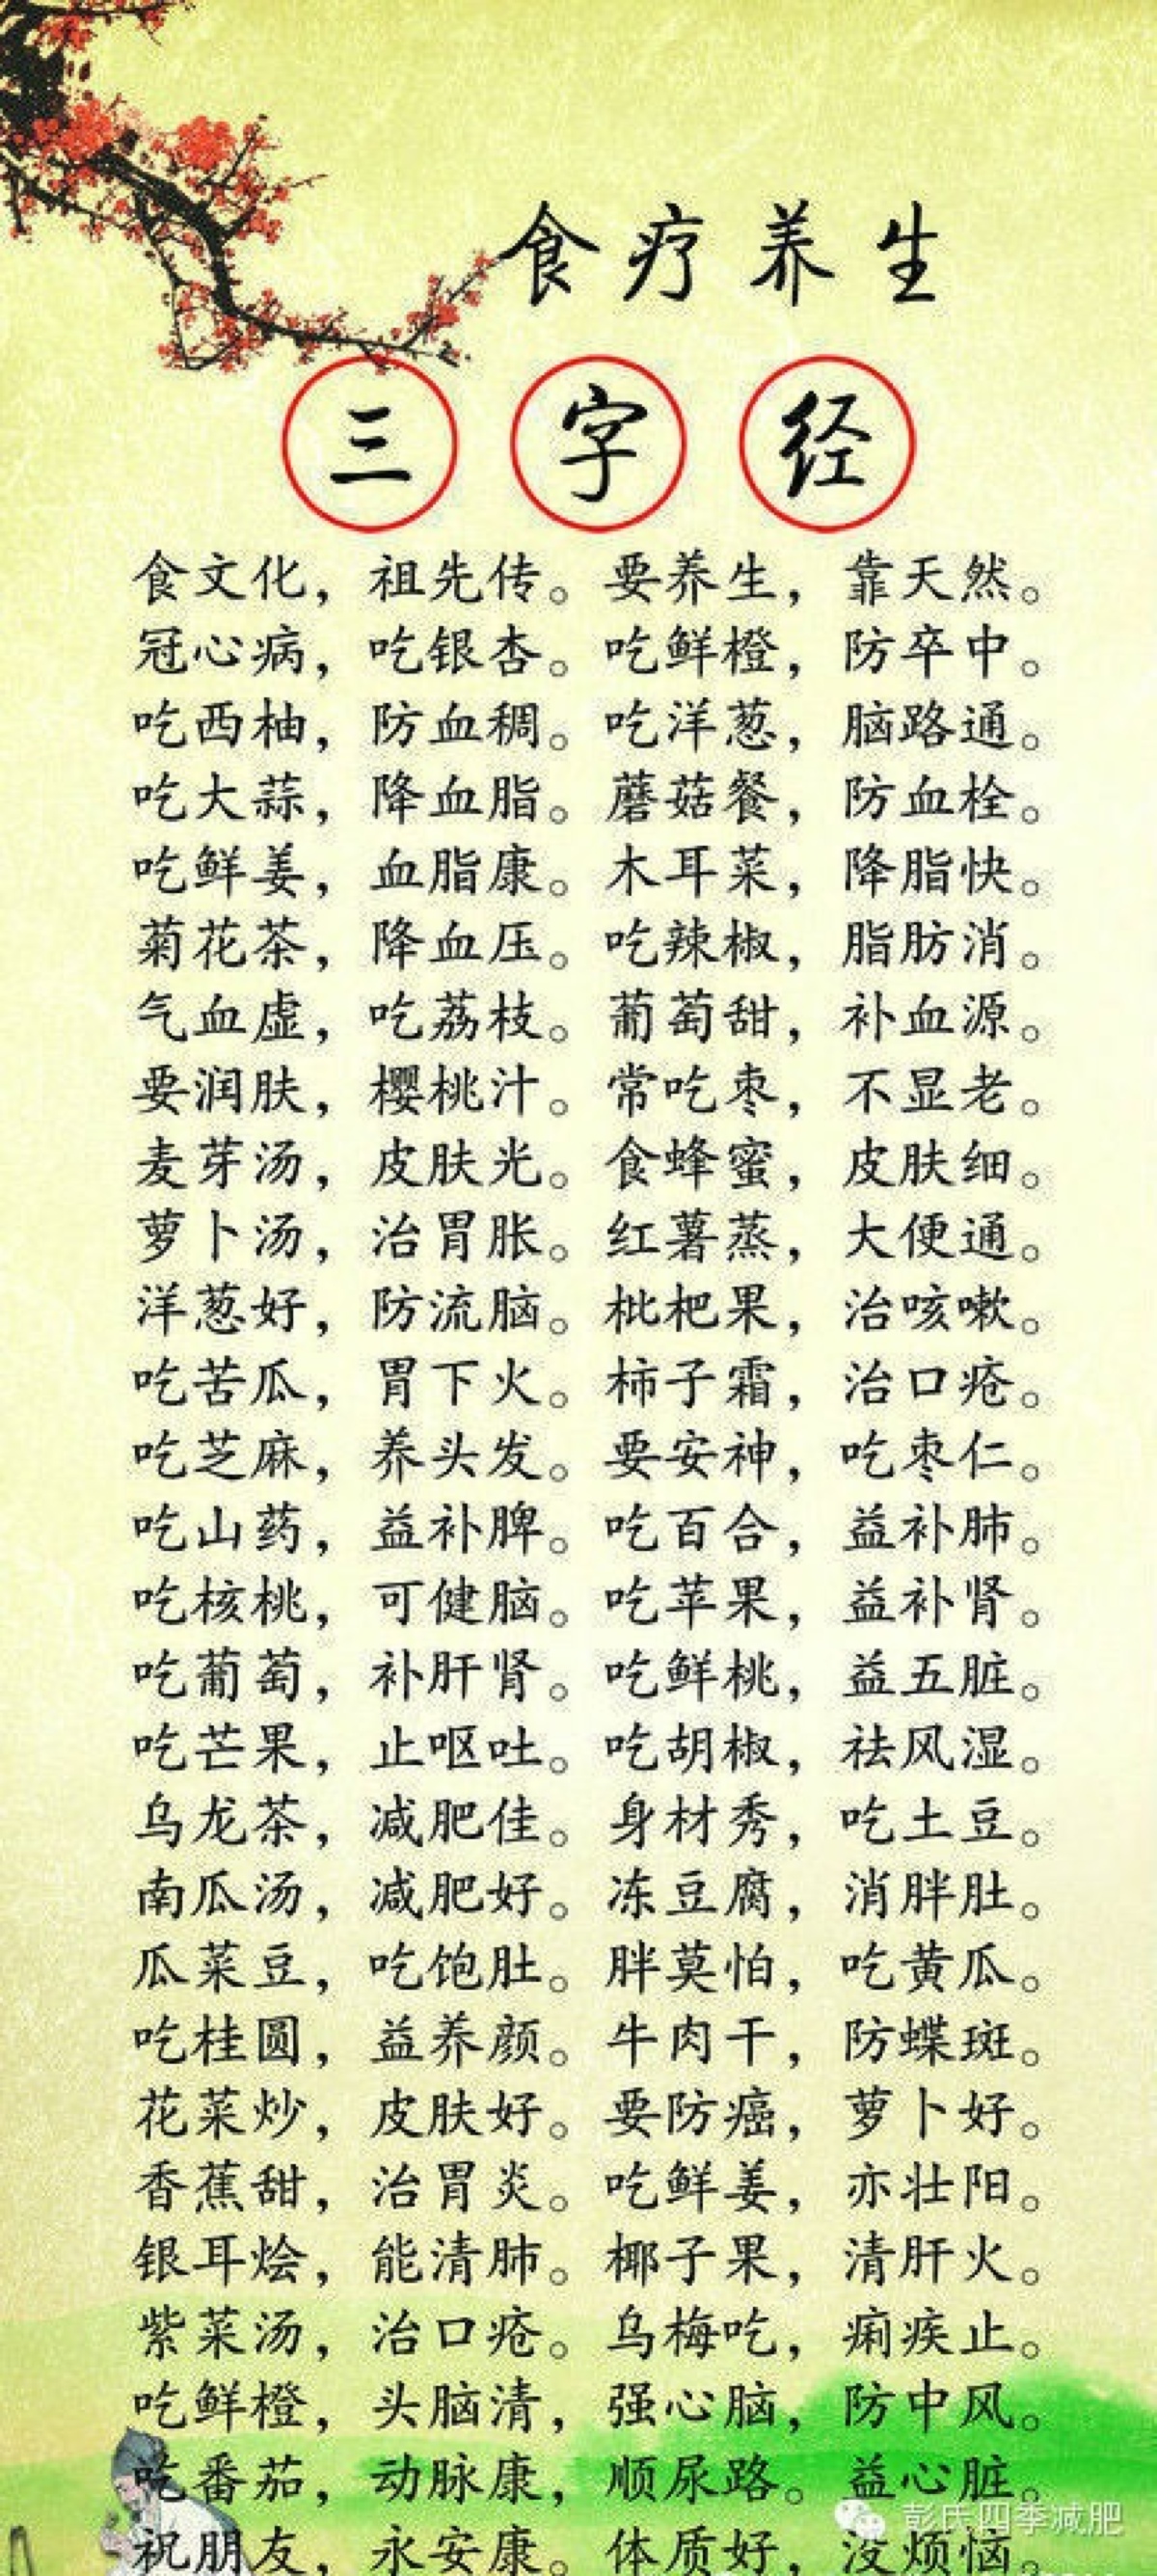 食疗养生
三字经
食文化，祖先传。要养生，靠天然。
冠心病，吃银杏。吃鲜橙，防卒中。
吃西柚，防血稠。吃洋葱，脑路通。
吃大蒜，降血脂。蘑菇餐，防血栓。
吃鲜姜，血脂康。木耳菜，降脂快。
菊花茶，降血压。吃辣椒，脂肪消。
气血虚，吃荔枝。葡萄甜，补血源。
要润肤，樱桃汁。常吃枣，不显老。
麦芽汤，皮肤光。食蜂蜜，皮肤细。
萝卜汤，治胃胀。红薯蒸，大便通。
洋葱好，防流脑。枇杷果，治咳嗽。
吃苦瓜，胃下火。柿子霜，治口疮。
吃芝麻，养头发。要安神，吃枣仁。
吃山药，益补脾。吃百合，益补肺。
吃核桃，可健脑。吃苹果，益补肾。
吃葡萄，补肝肾。吃鲜桃，益五脏。
吃芒果，止呕吐。吃胡椒，祛风湿。
乌龙茶，减肥佳。身材秀，吃土豆。
南瓜汤，减肥好。冻豆腐，消胖肚。
瓜菜豆，吃饱肚。胖莫怕，吃黄瓜。
吃桂圆，益养颜。牛肉干，防蝶斑。
花菜炒，皮肤好。要防癌，萝卜好。
香蕉甜，治胃炎。吃鲜姜，亦壮阳。
银耳烩，能清肺。椰子果，清肝火。
紫菜汤，治口疮。乌梅吃，痢疾止。
吃鲜橙，头脑清，强心脑，防中风。
吃番茄，动脉康，顺尿路。益心脏。
祝朋友，永安康。体质好，没烦恼。
彭氏四季减肥